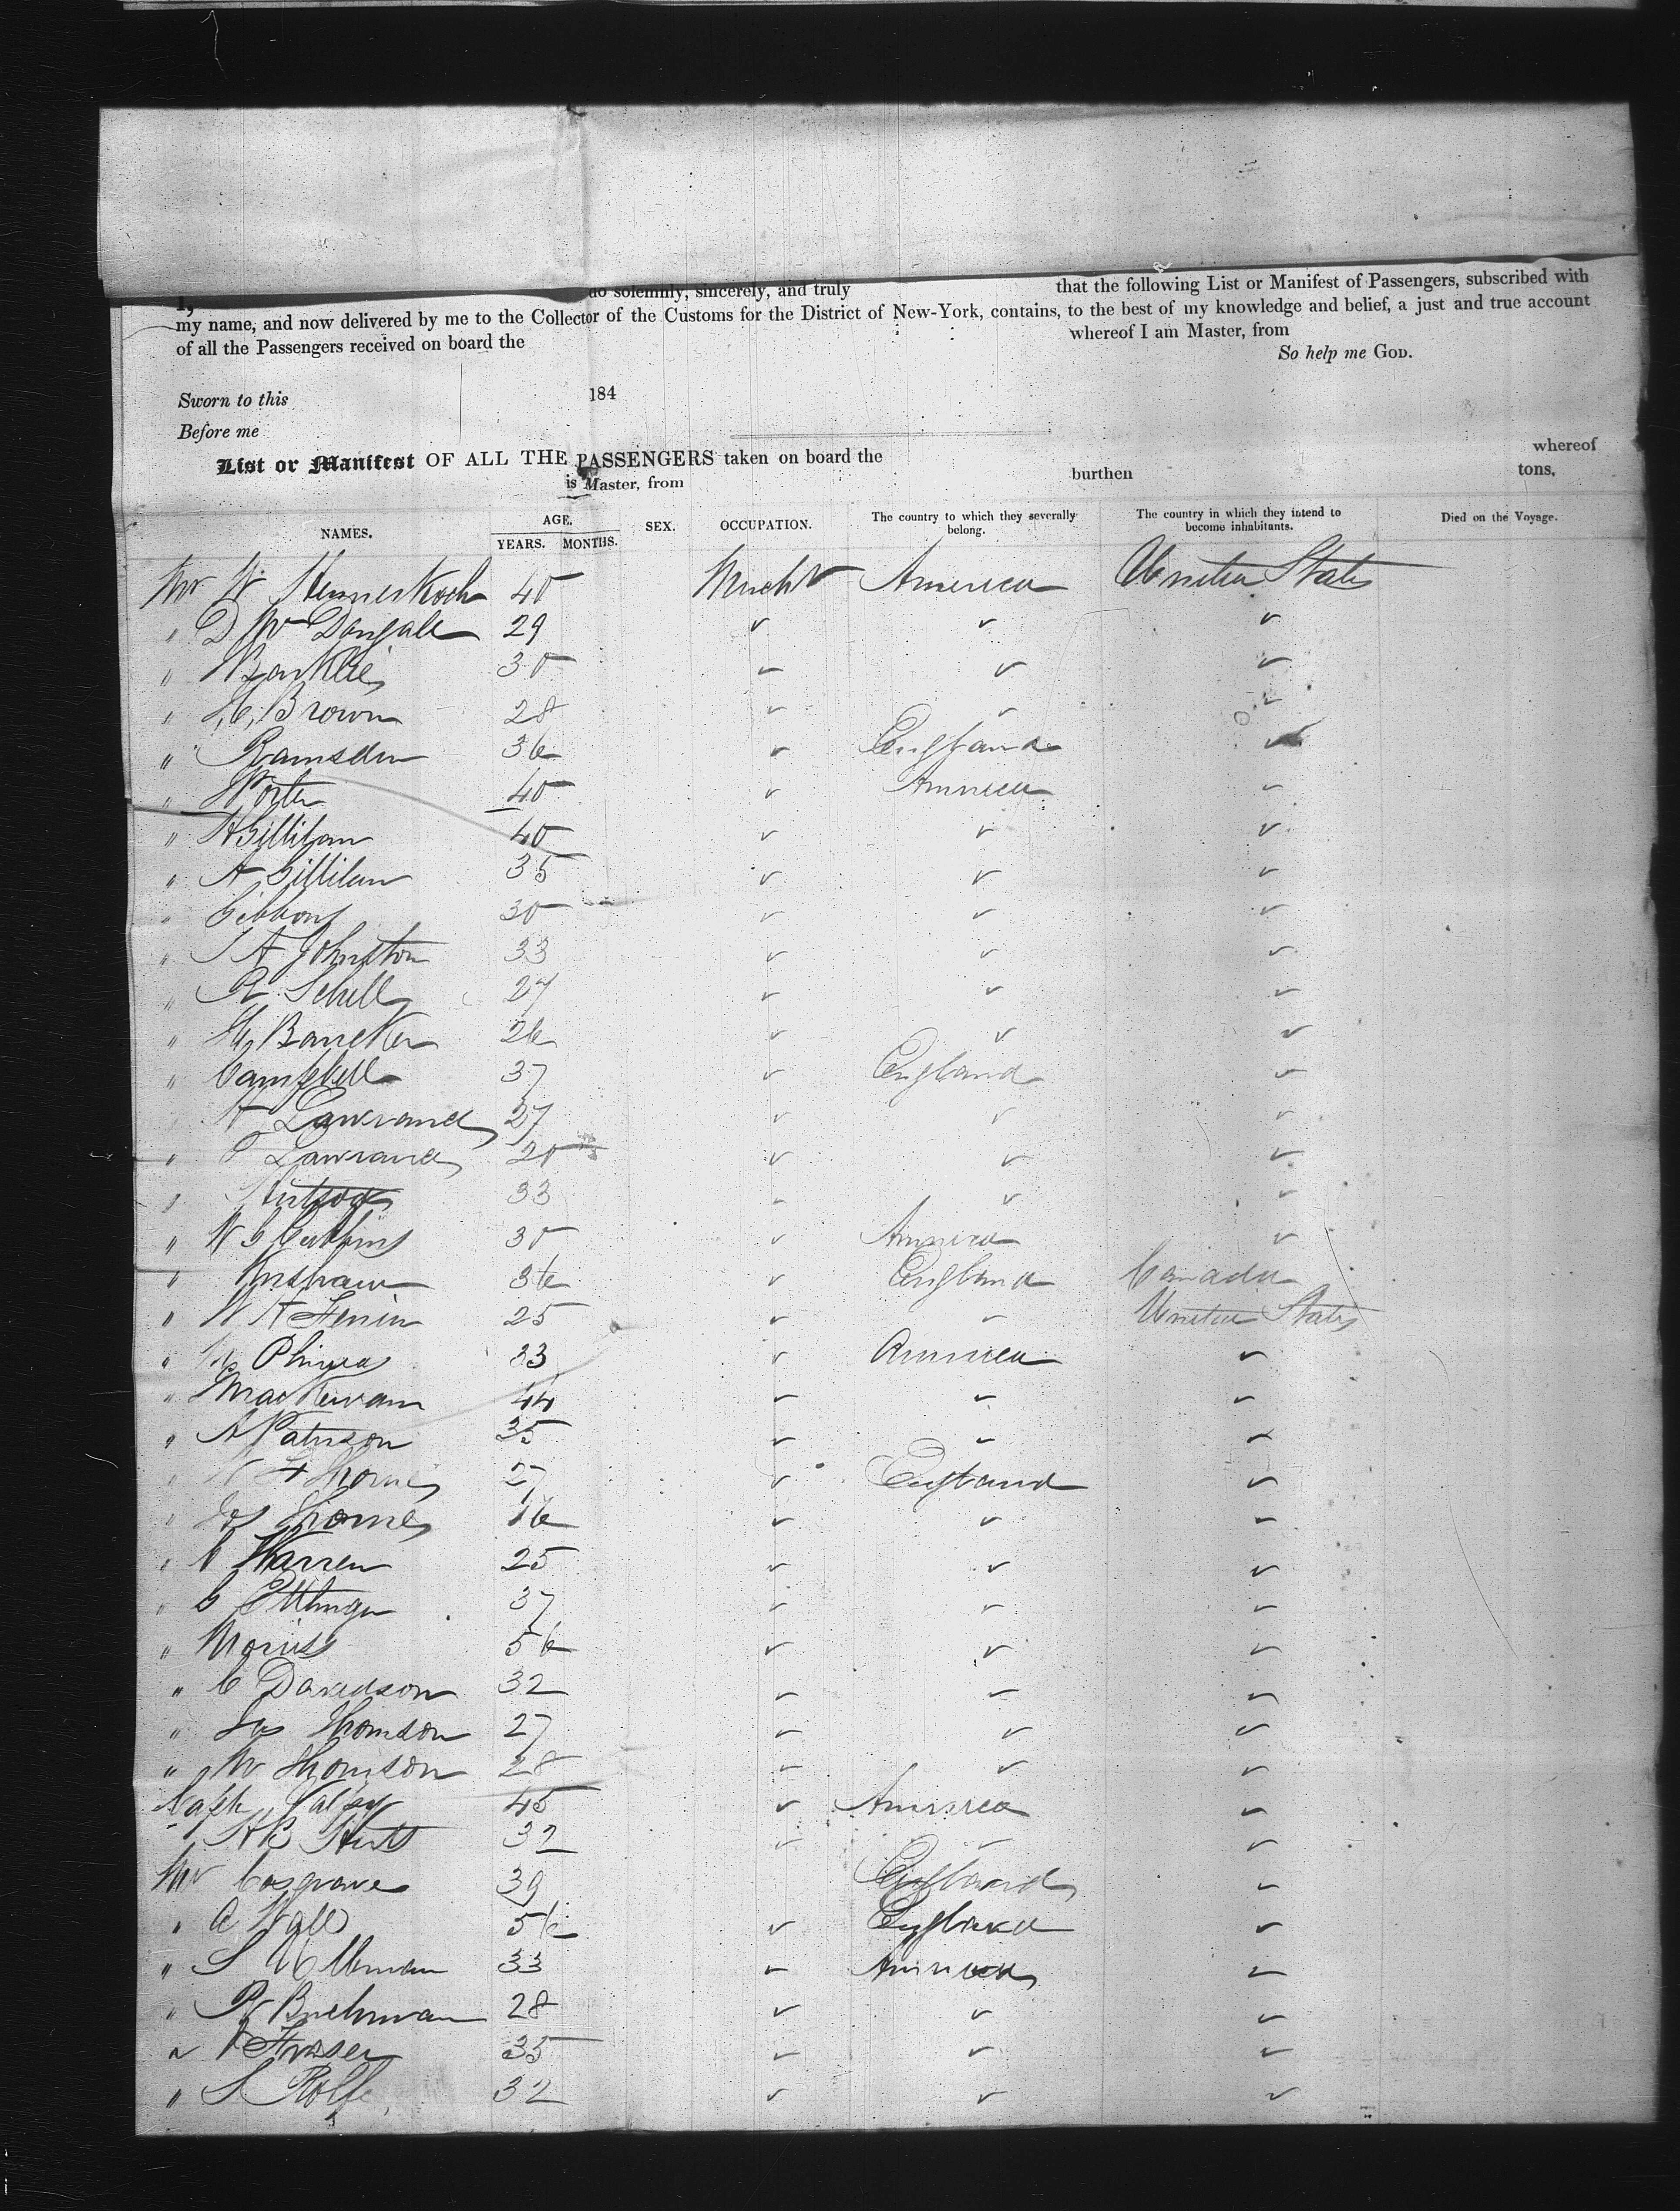 I, do solemnly, sincerely, and truly that the following List or Manifest of Passengers, subscribed with
my name, and now delivered by me to the Collector of the Customs for the District of New-York, contains, to the best of my knowledge and belief, a just and true account
of all the Passengers received on board the whereof I am Master, from
So help me GOD.
Sworn to this 184
Before me
List or Manifest OF ALL THE PASSENGERS taken on board the whereof
is Master, from burthen tons,
NAMES. AGE. YEARS. MONTHS. SEX. OCCUPATION. The country to which they severally belong. The country in which they intend to become inhabitants. Died on the Voyage.
Mr W 40 Mercht America United States
" D Mc Dougall 29 ✓ ✓ ✓
" 30 ✓ ✓ ✓
" H, Brown 28 ✓ ✓ ✓
" Ramsden 36 ✓ England ✓
" Porter 40 ✓ America ✓
" Gillilan 40 ✓ ✓ ✓
" A Gillilan 35 ✓ ✓ ✓
" Gibbons 30 ✓ ✓ ✓
" J A Johnston 33 ✓ ✓ ✓
" R Schell 27 ✓ ✓ ✓
" H, Bancker 26 ✓ ✓ ✓
" Campbell 37 ✓ England ✓
" Lawrance 27 ✓ ✓ ✓
" Lawrance 20 ✓ ✓ ✓
" 33 ✓ ✓ ✓
" W G 30 ✓ America ✓
" 36 ✓ England Canada
" W A 25 ✓ ✓ United States
" 33 ✓ America ✓
" 44 ✓ ✓ ✓
" A Paterson 35 ✓ ✓ ✓
" W F Thorne 27 ✓ England ✓
" Jos Thorne 16 ✓ ✓ ✓
" Warren 25 ✓ ✓ ✓
" G Ettlinger 37 ✓ ✓ ✓
" Morris 56 ✓ ✓ ✓
" C Davidson 32 ✓ ✓ ✓
" Jas Thomson 27 ✓ ✓ ✓
" W Thomson 28 ✓ ✓ ✓
Capt 45 ✓ America ✓
" 32 ✓ ✓ ✓
Mr Cosgrave 39 England ✓
" A Wall 56 ✓ England ✓
" S Ullman 33 ✓ America ✓
" 28 ✓ ✓ ✓
" Fraser 35 ✓ ✓ ✓
" S Rolfe 32 ✓ ✓ ✓